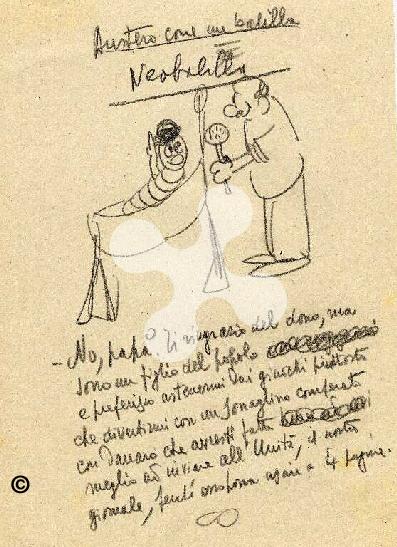 Austero come un balilla
Neobalilla
- No, papà. Ti ringrazio del dono, ma
sono un figlio del popolo
e preferisco astenermi dai giuochi piuttosto
che divertirmi con un sonaglino comperato
con danaro che avresti fatto
meglio ad inviare all'Unità, il nostro
giornale,
4 pagine.
©